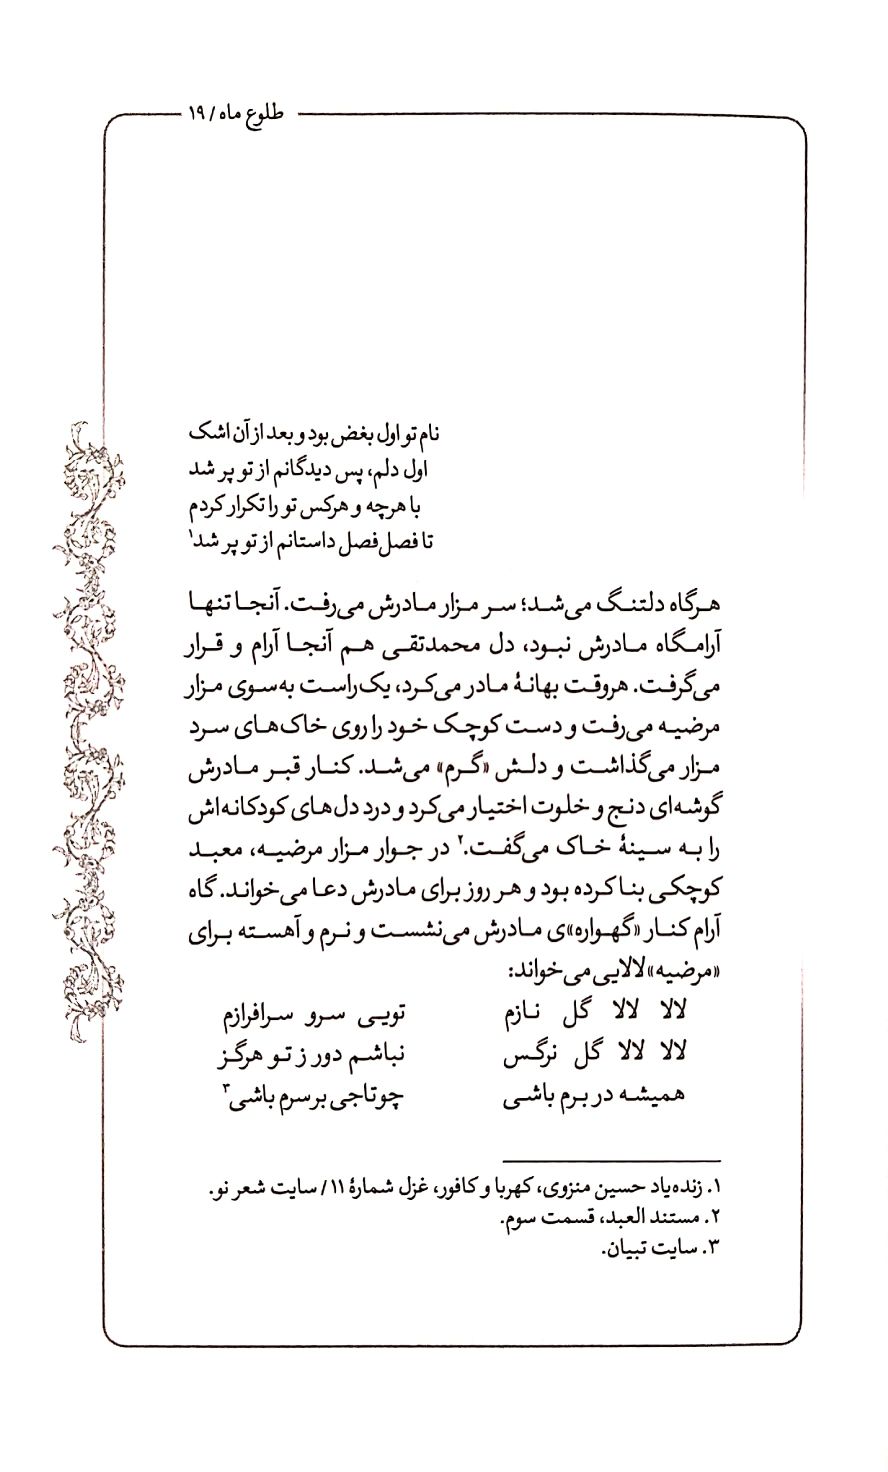 طلوع ماه / ۱۹
نام تو اول بغض بود و بعد از آن اشک
اول دلم، پس دیدگانم از تو پر شد
با هرچه و هرکس تو را تکرار کردم
تا فصل‌فصل داستانم از تو پر شد۱
هرگاه دلتنگ می‌شد؛ سر مزار مادرش می‌رفت. آنجا تنها
آرامگاه مادرش نبود، دل محمدتقی هم آنجا آرام و قرار
می‌گرفت. هروقت بهانهٔ مادر می‌کرد، یک‌راست به‌سوی مزار
مرضیه می‌رفت و دست کوچک خود را روی خاک‌های سرد
مزار می‌گذاشت و دلش «گرم» می‌شد. کنار قبر مادرش
گوشه‌ای دنج و خلوت اختیار می‌کرد و درد دل‌های کودکانه‌اش
را به سینهٔ خاک می‌گفت.۲ در جوار مزار مرضیه، معبد
کوچکی بنا کرده بود و هر روز برای مادرش دعا می‌خواند. گاه
آرام کنار «گهواره»ی مادرش می‌نشست و نرم و آهسته برای
«مرضیه» لالایی می‌خواند:
لالا لالا گل نازم تویی سرو سرافرازم
لالا لالا گل نرگس نباشم دور ز تو هرگز
همیشه در برم باشی چو تاجی بر سرم باشی۳
۱. زنده‌یاد حسین منزوی، کهربا و کافور، غزل شمارهٔ ۱۱ / سایت شعر نو.
۲. مستند العبد، قسمت سوم.
۳. سایت تبیان.